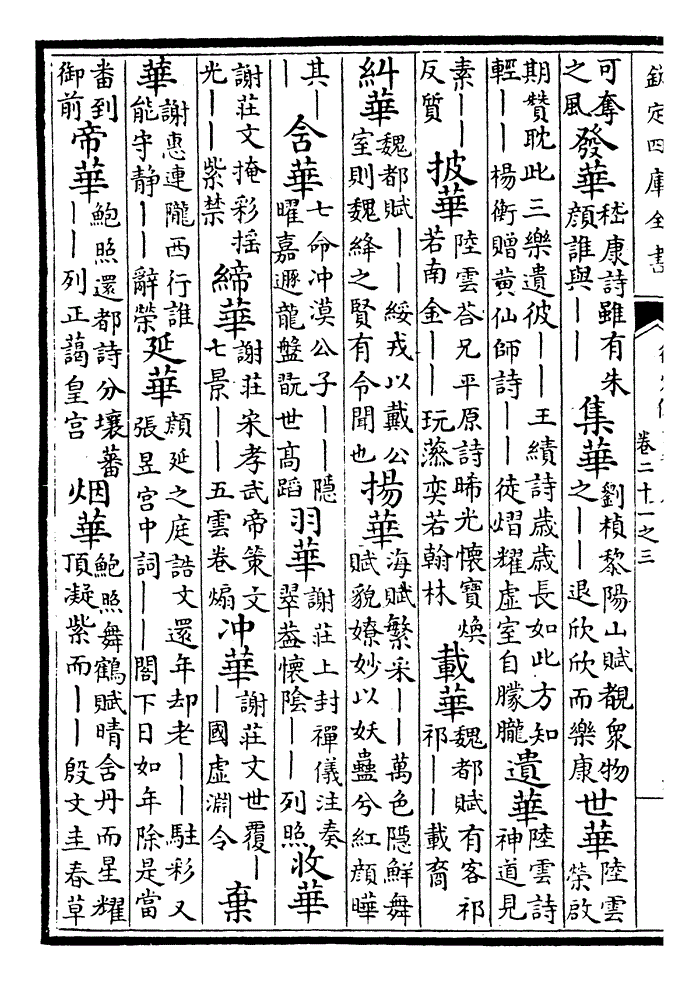 欽定四庫全書
卷二十一之三
可奪之風 發華 嵇康詩雖有朱顔誰與丨丨 集華 劉楨黎陽山賦覩衆物之丨丨退欣欣而樂康 世華 陸雲榮啟
期贊耽此三樂遺彼丨丨王績詩歳歳長如此方知輕丨丨楊衡贈黄仙師詩丨丨徒熠耀虛室自朦朧 遺華 陸雲詩神道見
素丨丨反質 披華 陸雲荅兄平原詩晞光懷寶煥若南金丨丨玩藻奕若翰林 載華 魏都賦有客祁祁丨丨載裔
糾華 魏都賦丨丨綏戎以戴公室則魏絳之賢有令聞也 揚華 海賦繁采丨丨萬色隱鮮舞賦貌嫽妙以妖蠱兮紅顔曄
其丨丨 含華 七命冲漠公子丨丨隱曜嘉遯龍盤翫世髙蹈 羽華 謝莊上封禪儀注奏翠葢懷陰丨丨列照 收華
謝莊文掩彩揺光丨丨紫禁 締華 謝莊宋孝武帝策文七景丨丨五雲卷煽 冲華 謝莊文世覆丨丨國虛淵令 棄
華 謝惠連隴西行誰能守静丨丨辭榮 延華 顔延之庭誥文還年却老丨丨駐彩又張昱宫中詞丨丨閣下日如年除是當
番到御前 帝華 鮑照還都詩分壤蕃丨丨列正藹皇宫 烟華 鮑照舞鶴賦晴含丹而星耀頂凝紫而丨丨殷文圭春草